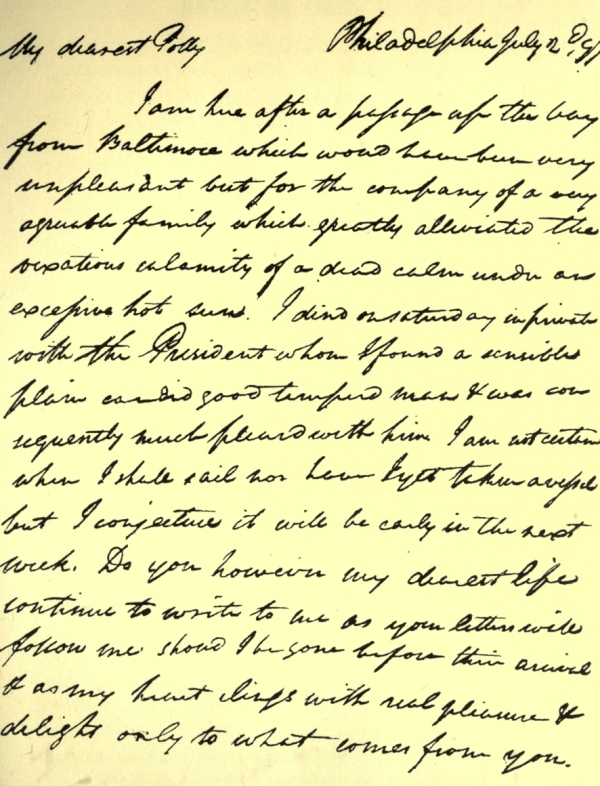 My dearest Polly Philadelphia July 2d, 97
I am here after a passage up the bay
from Baltimore which would have been very
unpleasant but for the company of a very
agreeable family which greatly alleviated the
vexatious calamity of a dead calm under an
excessive hot sun. I dind on saturday in private
with the President whom I found a sensible
plain candid good temperd man & was con
sequently much pleasd with him. I am not certain
when I shall sail nor have I yet taken a vessel
but I conjecture it will be early in the next
week. Do you however my dearest life
continue to write to me as your letters will
follow me should I be gone before their arrival
& as my heart clings with real pleasure &
delight only to what comes from you.